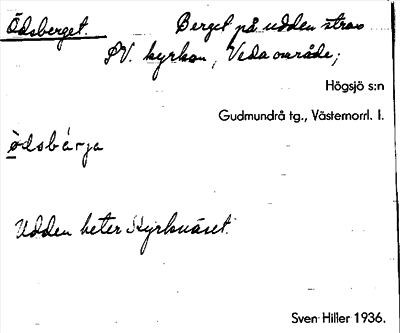 Ödsberget. Berget på udden strax
SV. kyrkan, Veda område;
Högsjö s:n
Gudmundrå tg., Västernorrl. l.
ödsbárja
Udden heter Kyrknäset.
Sven Hiller 1936.